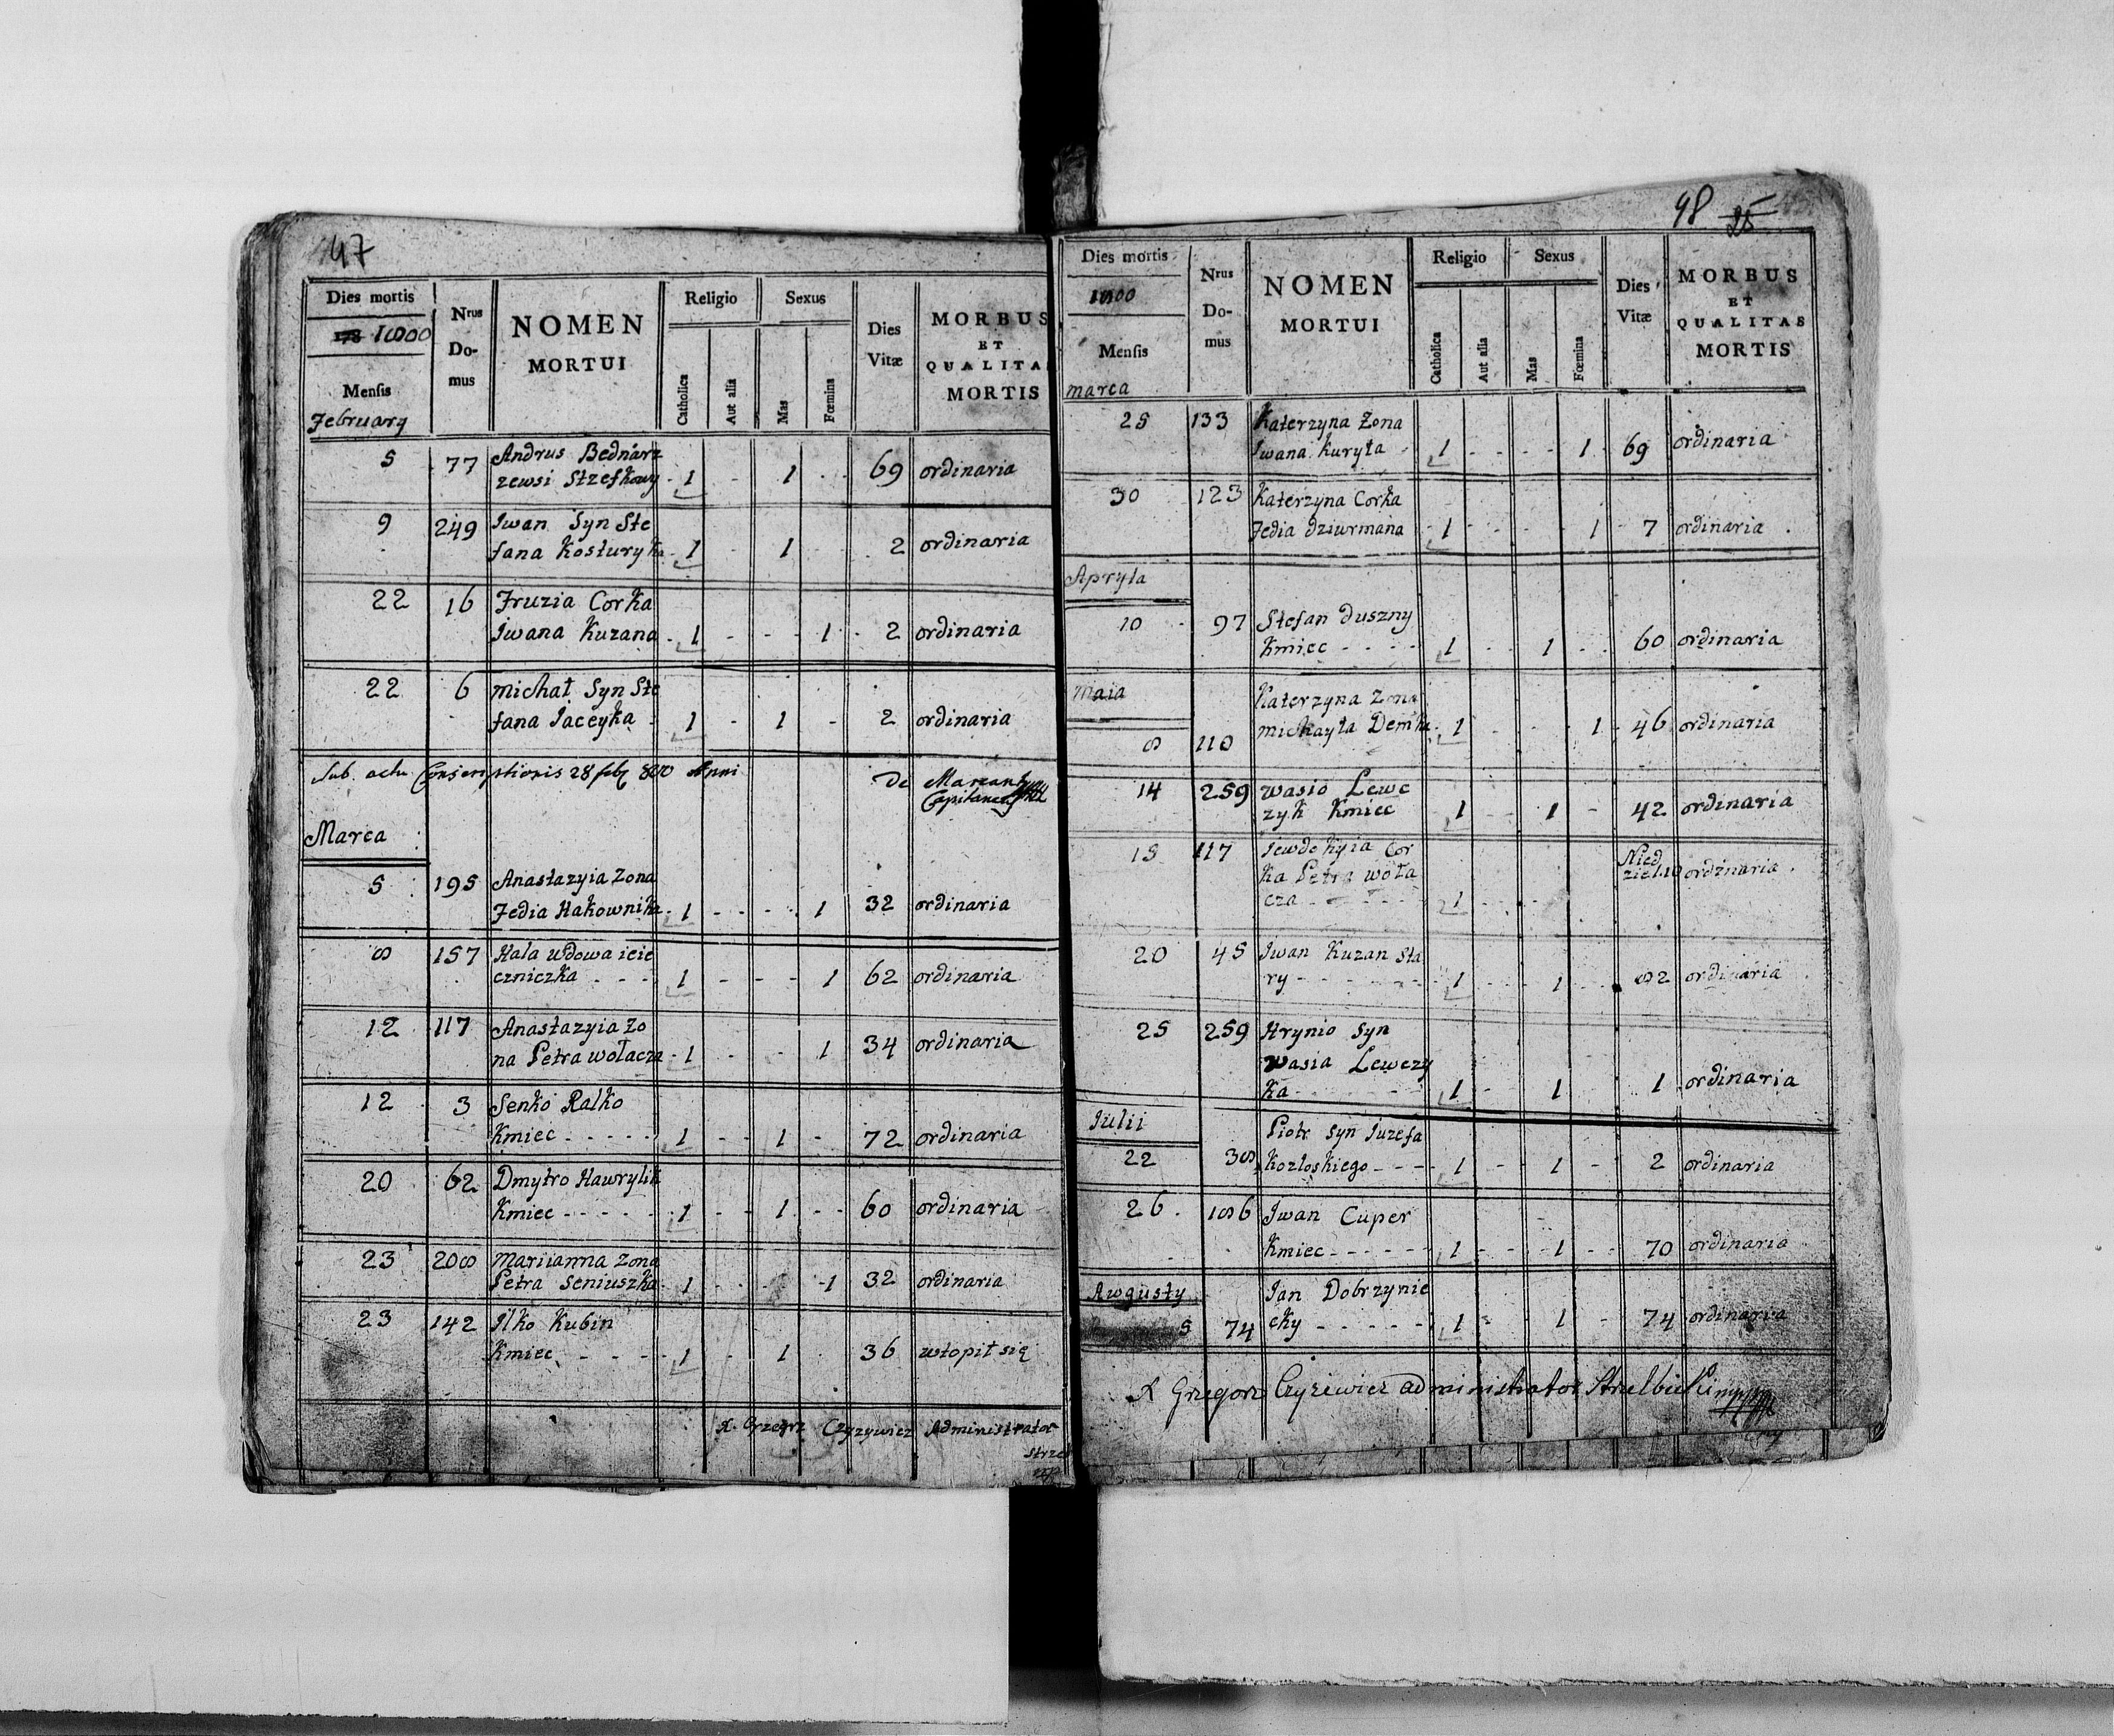 47
Dies mortis
1800
Mensis
February
Nrus Domus
NOMEN MORTUI
Religio
Catholica
Aut alia
Sexus
Mas
Fœmina
Dies Vitæ
MORBUS ET QUALITA
MORTIS
5 77 Andrus Bednarz
zewsi Strefkowy 1 - 1 - 69 ordinaria
9 249 Iwan Syn Ste
fana Kosturyka 1 - 1 2 ordinaria
22 16 Fruzia Corka
Iwana Kuzana 1 - - - 1 - 2 ordinaria
22 6 michał Syn Ste
fana Jaceyka 1 - 1 - 2 ordinaria
Sub actu Conscriptionis 28 feb 800 Anni De
Marca
5 195 Anastazyia Zona
Fedia Hakownika 1 - - - 1 32 ordinaria
8 157 Hala wdowa icie
czniczka - - - 1 - - - 1 62 ordinaria
12 117 Anastazyia Zo
na Petra wołacza 1 - - 1 34 ordinaria
12 3 Senko Ralko
Kmiec - - - - - 1 - - 1 - 72 ordinaria
20 62 Dmytro Hawrylik
Kmiec - - - - - 1 - - 1 - - 60 ordinaria
23 208 Mariianna Zona
Petra Seniuszka 1 - - -1 32 ordinaria
23 142 Ilko Kubin
Kmiec - - - 1 - 1 36 wtopił się
X. Grzegrz Czyzywicz Administrator
strze
98 25
Dies mortis
1800
Mensis
marca
Nrus Domus
NOMEN MORTUI
Religio
Catholica
Aut alia
Sexus
Mas
Fœmina
Dies Vitæ
MORBUS ET QUALITAS
MORTIS
25 133 Katerzyna Zona
Iwana Kuryła - 1 - - - - 1 69 ordinaria
30 123 Katerzyna Corka
Fedia dziurmana - 1 - - - 1 - 7 ordinaria
Apryla
10 97 Stefan duszny
Kmiec - - - - 1 - - 1 - - 60 ordinaria
Maia
Katerzyna Zona
8 110 michayła Demka 1 - - - 1 - 46 ordinaria
14 259 wasio Lewc
zyk Kmiec 1 - - 1 - 42 ordinaria
15 117 Jewdokyia Cor
ka Petra woła
cza - - - - - 1 - - - Nied
ziel 10 ordinaria
20 45 Iwan Kuzan Sta
ry - - - - - - 1 - - 1 - - 82 ordinaria
25 259 Hrynio Syn
wasia Lewczy
ka - - - - - - 1 - - 1 1 ordinaria
Iulii
22 38 Piotr Syn Iuzefa
Kozłoskiego - - - 1 - - 1 - 2 ordinaria
26 186 Iwan Cuper
Kmiec - - - - - 1 - - 1 - - 70 ordinaria
Awgusty
5 74 Jan Dobrzynie
cky - - - - - 1 - - 1 - 74 ordinaria
X Grzegorz Czyzewicz administrator Strzelbicki